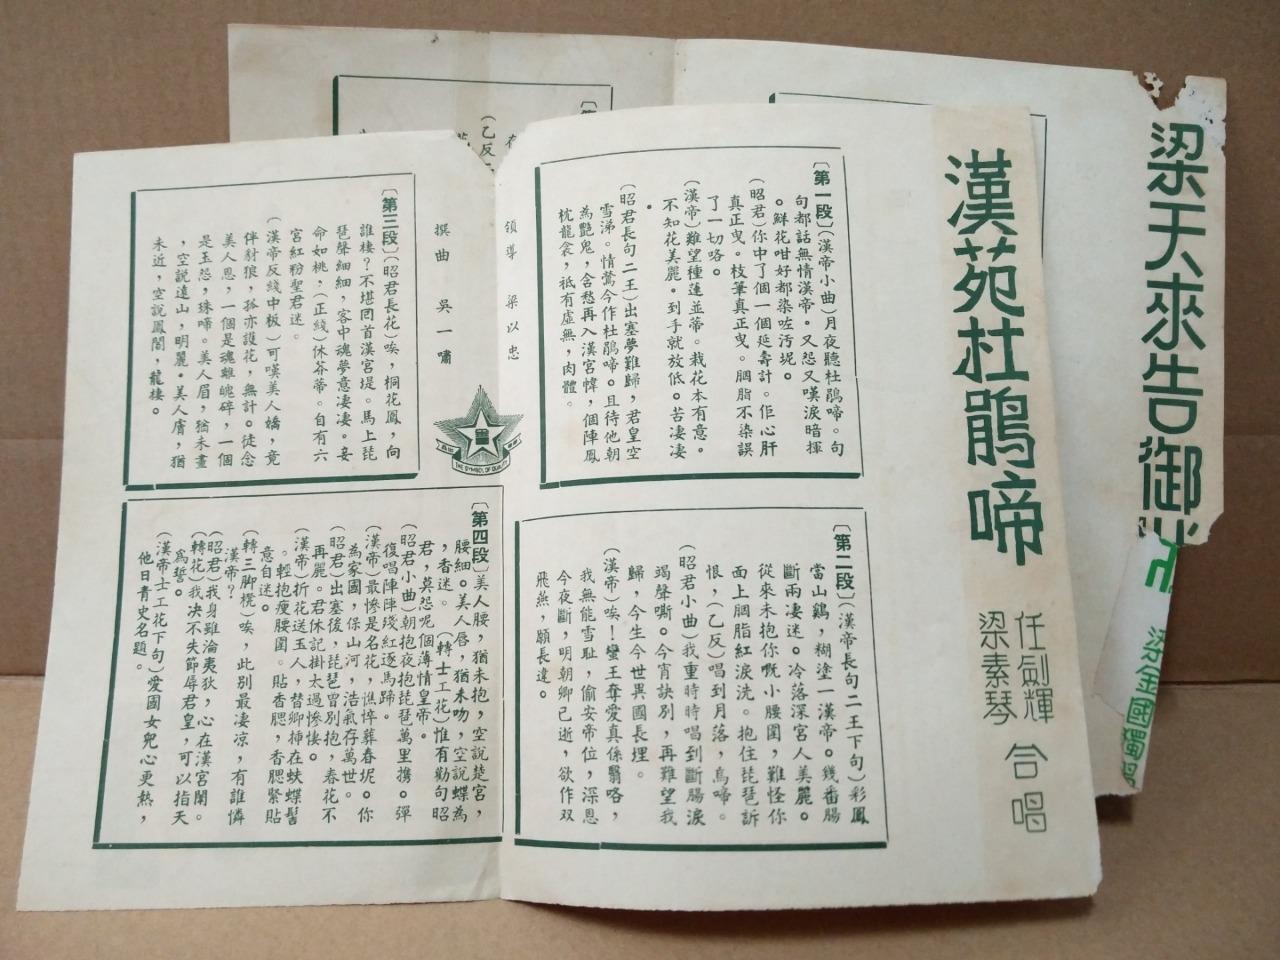 漢苑杜鵑啼
任劍輝
梁素琴
合唱
〔第一段〕(漢帝小曲)月夜聽杜鵑啼。句
句都話無情漢帝。又怨又嘆淚暗揮
。鮮花咁好都染咗汚坭。
(昭君)你中了個一個延壽計。佢心肝
真正曳。枝筆真正曳。胭脂不染誤
了一切咯。
(漢帝)難望種蓮並蒂。栽花本有意。
不知花美麗。到手就放低。苦凄凄
。
(昭君長句二王)出塞夢難歸,君皇空
雪涕。情鶯今作杜鵑啼。且待他朝
為艷鬼,含愁再入漢宮幃,個陣鳳
枕龍衾,祗有虛無,肉體。
〔第二段〕(漢帝長句二王下句)彩鳳
當山鷄,糊塗一漢帝。幾番腸
斷兩凄迷。冷落深宮人美麗。
從來未抱你嘅小腰圍,難怪你
面上胭脂紅淚洗。抱住琵琶訴
恨,(乙反)唱到月落,烏啼。
(昭君小曲)我重時時唱到斷腸淚
竭聲嘶。今宵訣別,再難望我
歸,今生今世異國長埋。
(漢帝)唉!蠻王奪愛真係翳咯,
我無能雪耻,偷安帝位,深恩
今夜斷,明朝卿已逝,欲作双
飛燕,願長違。
領導 梁以忠
撰曲 吳一嘯
THE SYMBOL OF QUALITY
〔第三段〕(昭君長花)唉,桐花鳳,向
誰棲?不堪囘首漢宮堤。馬上琵
琶聲細細,客中魂夢意凄凄。妾
命如桃,(正綫)休芬蒂。自有六
宮紅粉聖君迷。
(漢帝反綫中板)可嘆美人嬌,竟
伴豺狼,孤亦護花,無計。徒念
美人恩,一個是魂離魄碎,一個
是玉怨,珠啼。美人眉,猶未畫
,空說遠山,明麗。美人膚,猶
未近,空說鳳閣,龍樓。
〔第四段〕美人腰,猶未抱,空說楚宮,
腰細。美人唇,猶未吻,空說蝶為
,香迷。(轉士工花)惟有勸句昭
君,莫怨呢個薄情皇帝。
(昭君小曲)朝抱夜抱琵琶萬里携。彈
復唱陣陣殘紅逐馬蹄。
(漢帝)最慘是名花,憔悴葬春坭。你
為家國,保山河,浩氣存萬世。
(昭君)出塞後,琵琶曾別抱,春花不
再麗。君休記掛太過慘悽。
(漢帝)折花送玉人,替卿揷在蚨蝶髻
。輕抱瘦腰圍。貼香腮,香腮緊貼
意自迷。
(轉三脚櫈)唉,此別最凄凉,有誰憐
漢帝?
(昭君)我身雖淪夷狄,心在漢宮閨。
(轉花)我决不失節辱君皇,可以指天
為誓。
(漢帝士工花下句)愛國女兒心更熱,
他日青史名題。
梁天來告御
梁金國獨
(乙反